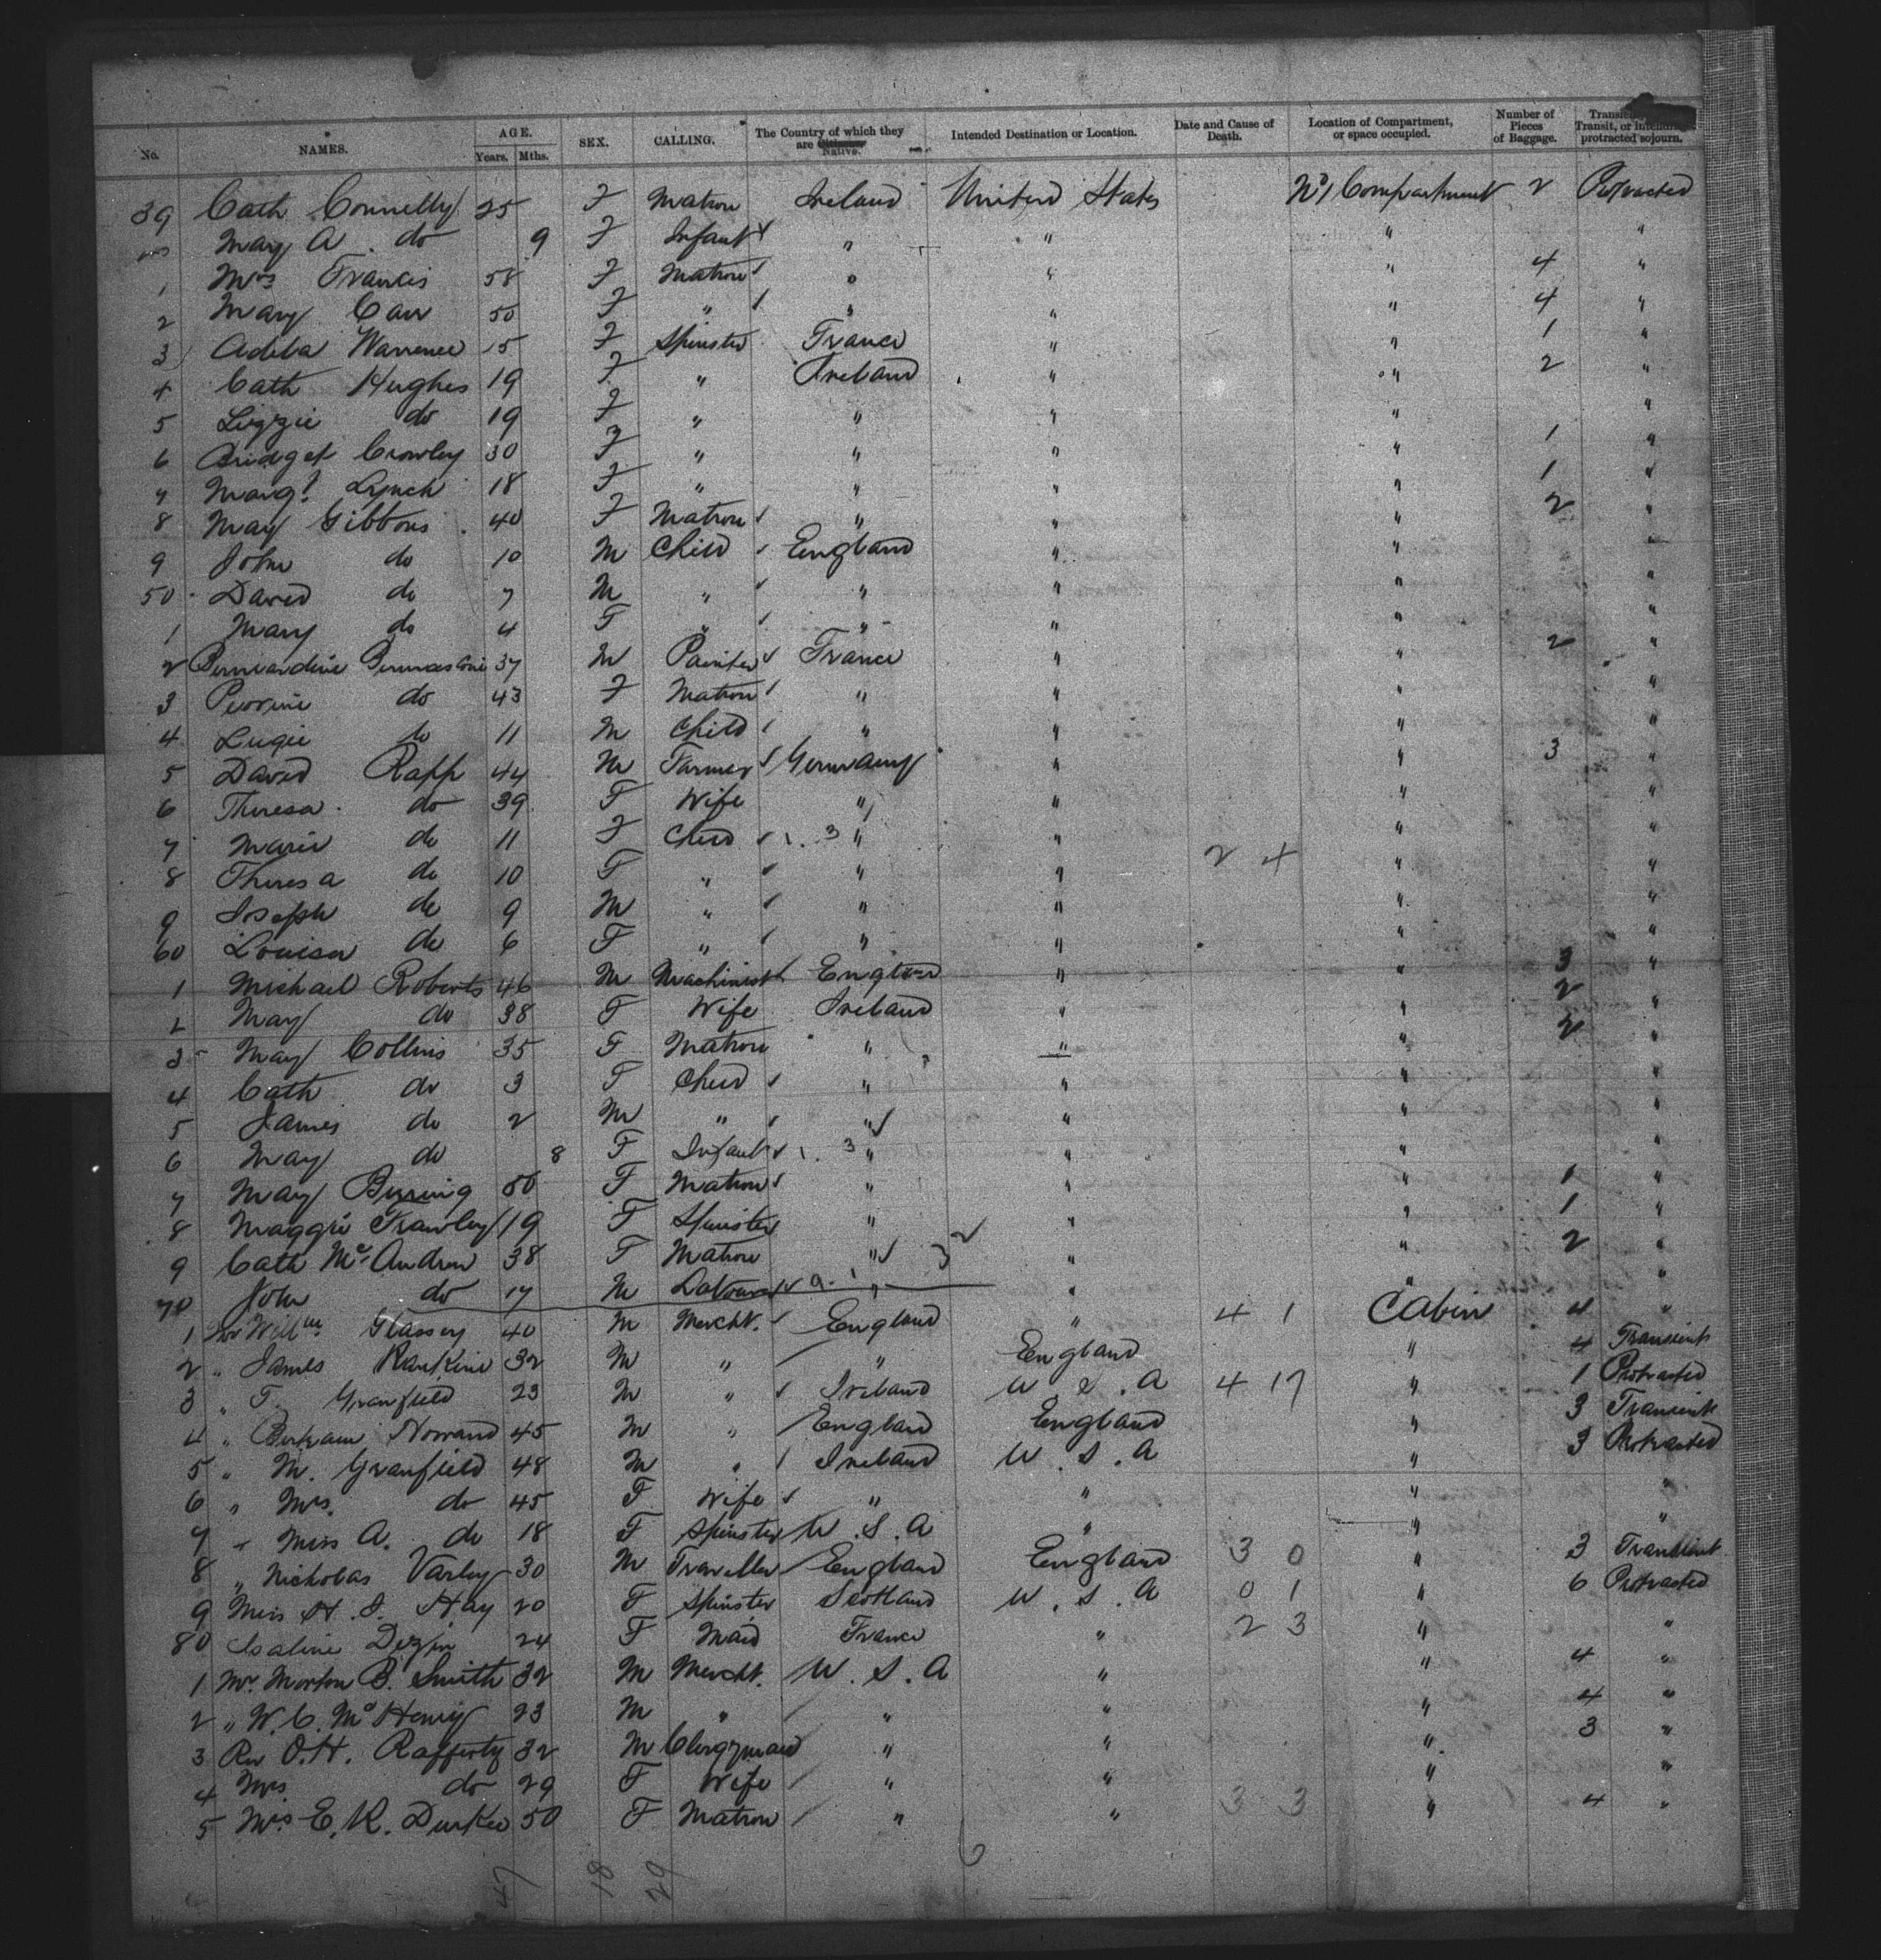 No. NAMES. AGE. Years. Mths. SEX. CALLING. The Country of which they are Native. Intended Destination or Location. Date and Cause of Death. Location of Compartment, or space occupied. Number of Pieces of Baggage. Transit, or intending protracted sojourn.
39 Cath Connelly 25 F Matron Ireland United States No 1 Compartment 2 Protracted
May A. do 9 F Infant " " " "
1 Mrs Francis 58 F Matron " " " 4 "
2 Mary Carr 50 F " " " " 4 "
3 Adela Warrenee 15 F Spinster France " " 1 "
4 Cath Hughes 19 F " Ireland " " 2 "
5 Lizzie do 19 F " " " " "
6 Bridget Crowley 30 F " " " " 1 "
7 Margt Lynch 18 F " " " " 1 "
8 May Gibbons 40 F Matron " " " 2 "
9 John do 10 M Child England " " "
50 David do 7 M " " " " "
1 Mary do 4 F " " " " "
2 37 M Painter France " " 2 "
3 Perrine do 43 F Matron " " " "
4 Lugie do 11 M Child " " " "
5 David Rapp 44 M Farmer Germany " " 3 "
6 Theresa do 39 F Wife " " " "
7 Marie do 11 F Child 3 " " " "
8 Theresa do 10 F " " " 2 4 " "
9 Joseph do 9 M " " " " "
60 Louisa do 6 F " " " " "
1 Michael Roberts 46 M Machinist England " " 3 "
2 May do 38 F Wife Ireland " " 2 "
3 May Collins 35 F Matron " " " 2 "
4 Cath do 3 F Child " " " "
5 James do 2 M " " " " "
6 May do 8 F Infant 3 " " " "
7 May Byrning 50 F Matron " " " 1 "
8 Maggie Frawley 19 F Spinster " " " 1 "
9 Cath McAndrew 38 F Matron " 32 " " 2 "
70 John do 17 M Labourer " " " "
1 Mr Willm Glassey 40 M Mercht. England " 4 1 Cabin 4 "
2 " James Rankine 32 M " " England " 4 Transient
3 " T. Granfield 23 M " Ireland U.S.A 4 17 " 1 Protracted
4 " Bertram Howard 45 M " England England " 3 Transient
5 " M. Granfield 48 M " Ireland U.S.A " 3 Protracted
6 " Mrs. do 45 F Wife " " " "
7 " Miss A. do 18 F Spinster U.S.A " " "
8 " Nicholas Varley 30 M Traveller England England 3 0 " 3 Transient
9 Miss H.J. Hay 20 F Spinster Scotland U.S.A 0 1 " 6 Protracted
80 Isaline Dezin 24 F Maid France " 2 3 " "
1 Mr. Morton B. Smith 32 M Mercht. U.S.A " " 4 "
2 " W.C. McHenry 23 M " " " " 4 "
3 Rev O.H. Rafferty 32 M Clergyman " " " 3 "
4 Mrs. do 29 F Wife " " " "
5 Mrs E.K. Durkee 50 F Matron " " 3 3 " 4 "
47 18 29 6